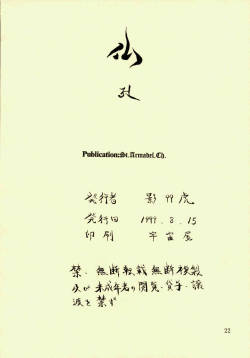 仙
Publication;St.Armadel.Ch.
発行者 影 99 虎
発行日 1999. 8. 15
印刷
禁、無断転載無断複製
及び未成年者の閲覧・貸与・譲
渡を禁ず
22